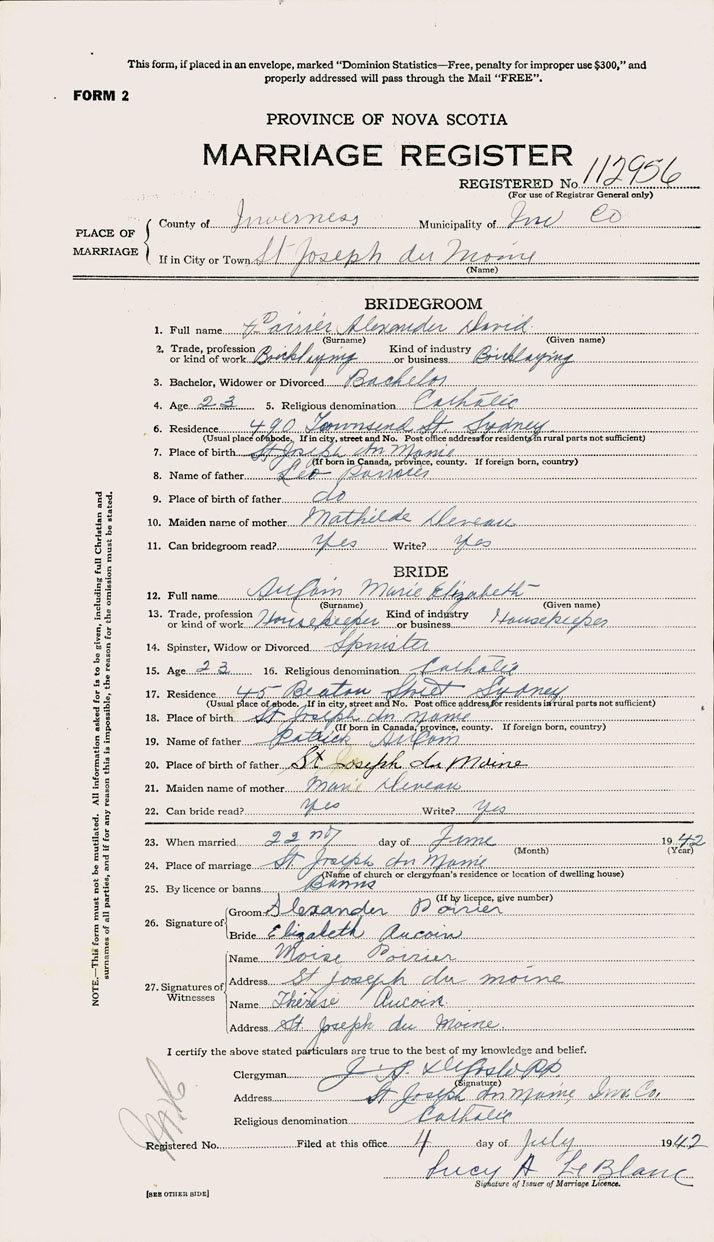 This form, if placed in an envelope, marked “Dominion Statistics—Free, penalty for improper use $300,” and
properly addressed will pass through the Mail “FREE”.
FORM 2
PROVINCE OF NOVA SCOTIA
MARRIAGE REGISTER
REGISTERED No. 112956
(For use of Registrar General only)
PLACE OF MARRIAGE
County of Inverness Municipality of Inv Co
If in City or Town St Joseph du Moine
(Name)
BRIDEGROOM
1. Full name Poirier Alexander David
(Surname) (Given name)
2. Trade, profession or kind of work Bricklaying Kind of industry or business Bricklaying
3. Bachelor, Widower or Divorced Bachelor
4. Age 23 5. Religious denomination Catholic
6. Residence 490 Townsend St Sydney
(Usual place of abode. If in city, street and No. Post office address for residents in rural parts not sufficient)
7. Place of birth St Joseph du Moine
(If born in Canada, province, county. If foreign born, country)
8. Name of father Leo Poirier
9. Place of birth of father do
10. Maiden name of mother Mathilde Deveau
11. Can bridegroom read? yes Write? yes
BRIDE
12. Full name AuCoin Marie Elizabeth
(Surname) (Given name)
13. Trade, profession or kind of work Housekeeper Kind of industry or business Housekeeper
14. Spinster, Widow or Divorced Spinster
15. Age 23 16. Religious denomination Catholic
17. Residence 45 Beaton Street Sydney
(Usual place of abode. If in city, street and No. Post office address for residents in rural parts not sufficient)
18. Place of birth St Joseph du Moine
(If born in Canada, province, county. If foreign born, country)
19. Name of father Patrick AuCoin
20. Place of birth of father St Joseph du Moine
21. Maiden name of mother Marie Deveau
22. Can bride read? Yes Write? Yes
23. When married 22 nd day of June 1942
(Month) (Year)
24. Place of marriage St Joseph du Moine
(Name of church or clergyman's residence or location of dwelling house)
25. By licence or banns Banns
(If by licence, give number)
26. Signature of
Groom Alexander Poirier
Bride Elizabeth Aucoin
27. Signatures of Witnesses
Name Moise Poirier
Address St Joseph du moine
Name Thérèse Aucoin
Address St. Joseph du Moine.
I certify the above stated particulars are true to the best of my knowledge and belief.
Clergyman J. PP
(Signature)
Address St Joseph du Moine, Inv. Co.
Religious denomination Catholic
Registered No. Filed at this office 4 day of July 1942
Lucy A LeBlanc
Signature of Issuer of Marriage Licence.
[SEE OTHER SIDE]
NOTE.—This form must not be mutilated. All information asked for is to be given, including full Christian and
surnames of all parties, and if for any reason this is impossible, the reason for the omission must be stated.